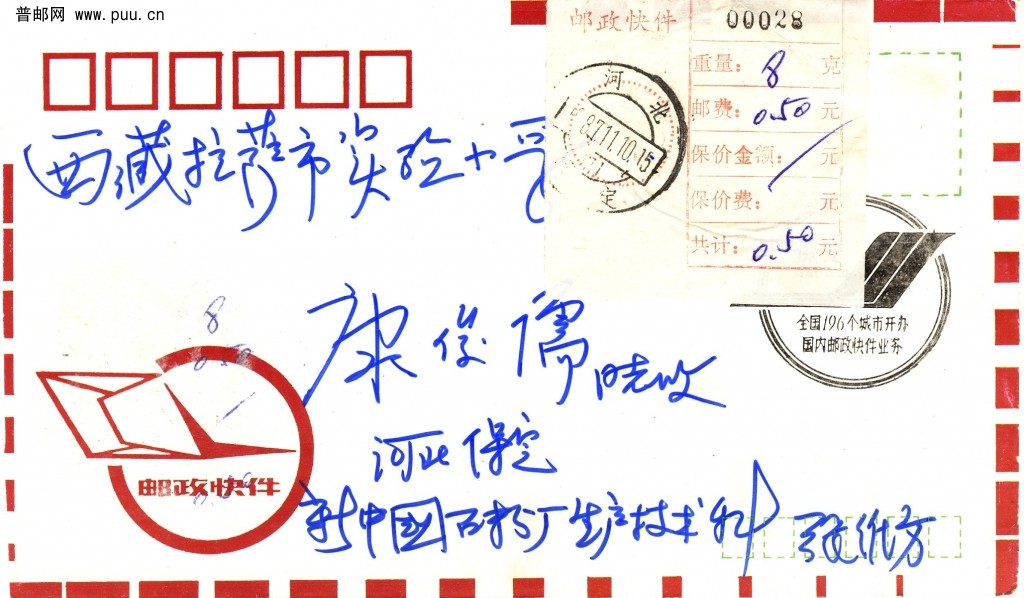 普邮网
www.puu.cn
邮政快件
00028
重量： 8 克
邮费： 0.50 元
保价金额： 元
保价费： 元
共计： 0.50 元
河北
87.11.10.15
定
西藏拉萨市实验小学
康俊儒
河北保定
新中國
厂生产技术科
张维方
全国196个城市开办
国内邮政快件业务
8
0.50
邮政快件